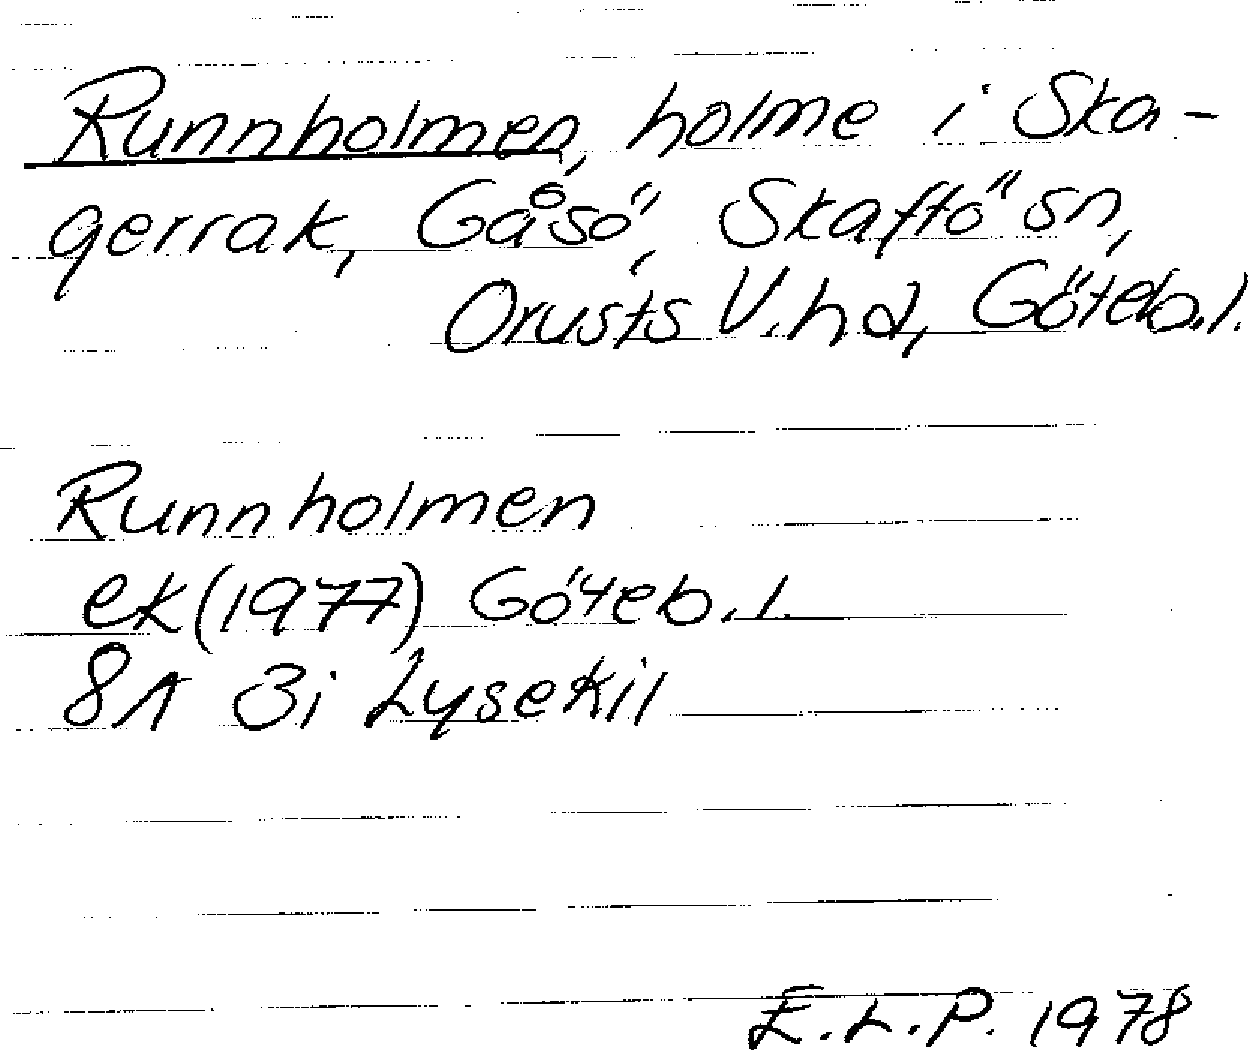 Runnholmen, holme i Ska-
gerrak, Gåsö, Skaftö sn,
Orusts V. hd, Göteb. l.
Runnholmen
ek (1977) Göteb. l.
8A 3i Lysekil
E.L.P. 1978